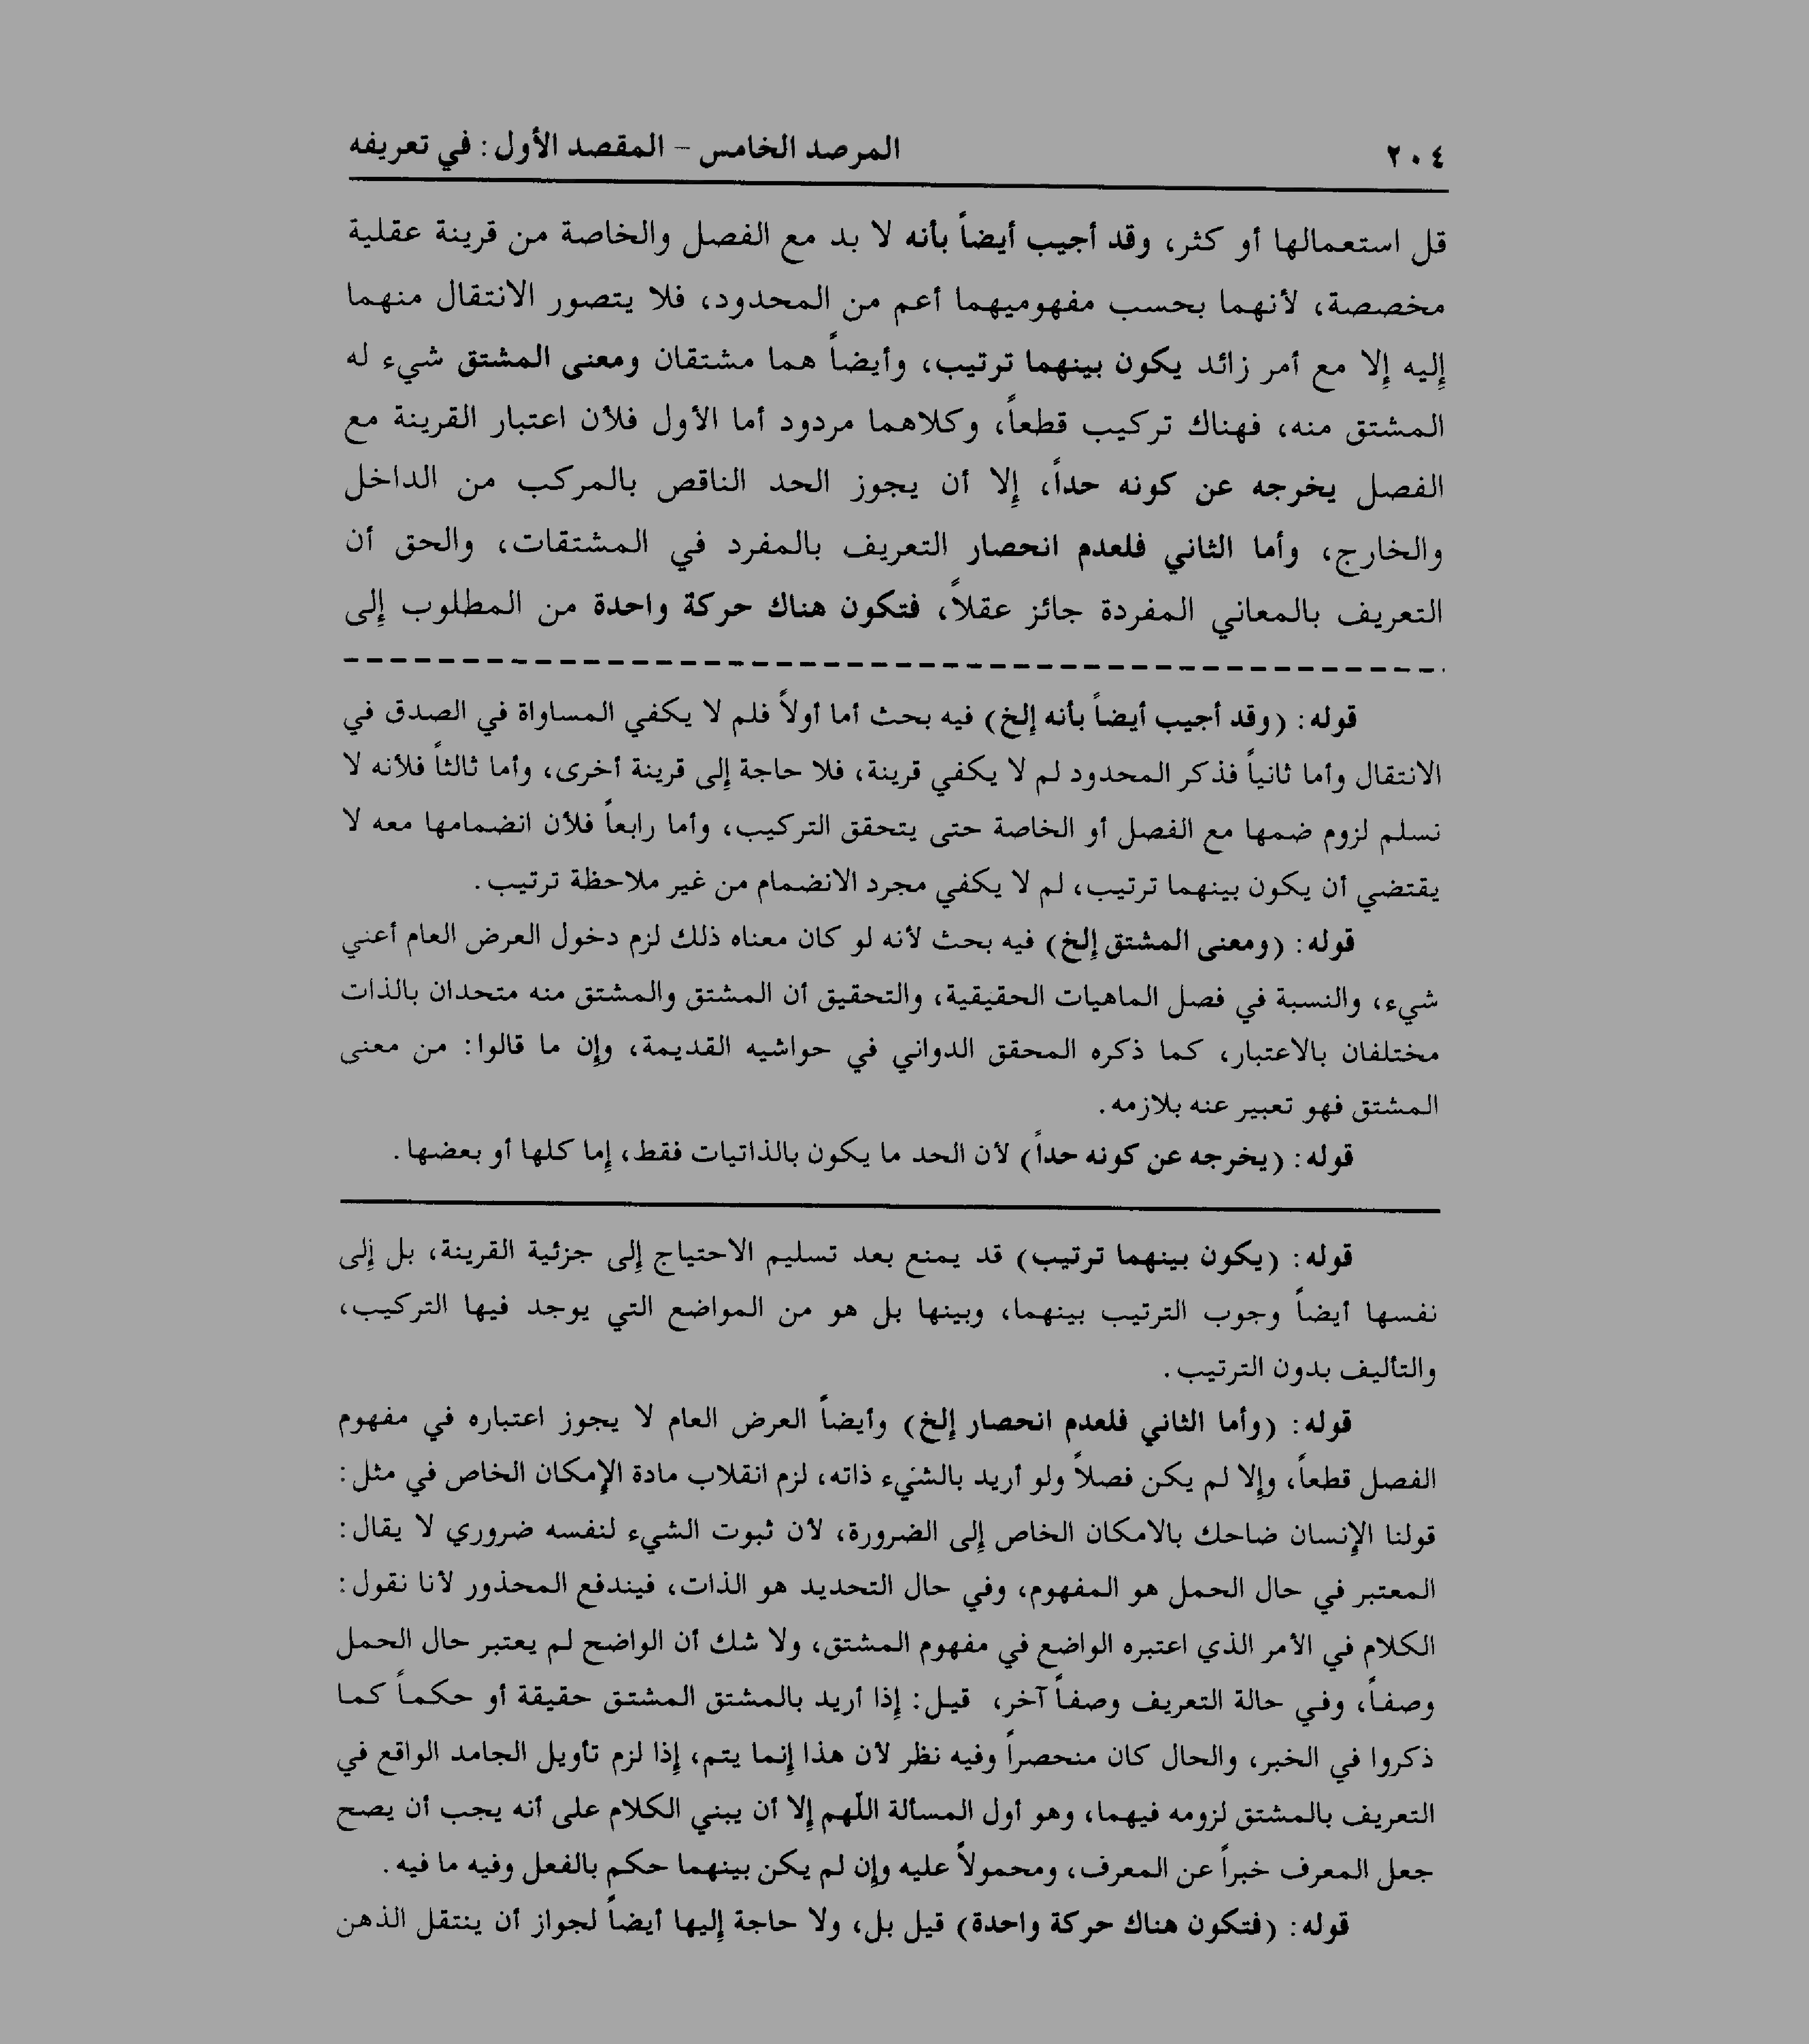 ٢٠٤
المرصد الخامس – المقصد الأول: في تعريفه
قل استعمالها أو كثر، وقد أجيب أيضاً بأنه لا بد مع الفصل والخاصة من قرينة عقلية
مخصصة، لأنهما بحسب مفهوميهما أعم من المحدود، فلا يتصور الانتقال منهما
إليه إلا مع أمر زائد يكون بينهما ترتيب، وأيضاً هما مشتقان ومعنى المشتق شيء له
المشتق منه، فهناك تركيب قطعاً، وكلاهما مردود أما الأول فلأن اعتبار القرينة مع
الفصل يخرجه عن كونه حداً، إلا أن يجوز الحد الناقص بالمركب من الداخل
والخارج، وأما الثاني فلعدم انحصار التعريف بالمفرد في المشتقات، والحق أن
التعريف بالمعاني المفردة جائز عقلاً، فتكون هناك حركة واحدة من المطلوب إلى
قوله: (وقد أجيب أيضاً بأنه إلخ) فيه بحث أما أولاً فلم لا يكفي المساواة في الصدق في
الانتقال وأما ثانياً فذكر المحدود لم لا يكفي قرينة، فلا حاجة إلى قرينة أخرى، وأما ثالثاً فلأنه لا
نسلم لزوم ضمها مع الفصل أو الخاصة حتى يتحقق التركيب، وأما رابعاً فلأن انضمامها معه لا
يقتضي أن يكون بينهما ترتيب، لم لا يكفي مجرد الانضمام من غير ملاحظة ترتيب.
قوله: (ومعنى المشتق إلخ) فيه بحث لأنه لو كان معناه ذلك لزم دخول العرض العام أعني
شيء، والنسبة في فصل الماهيات الحقيقية، والتحقيق أن المشتق والمشتق منه متحدان بالذات
مختلفان بالاعتبار، كما ذكره المحقق الدواني في حواشيه القديمة، وإن ما قالوا: من معنى
المشتق فهو تعبير عنه بلازمه.
قوله: (يخرجه عن كونه حداً) لأن الحد ما يكون بالذاتيات فقط، إما كلها أو بعضها.
قوله: (يكون بينهما ترتيب) قد يمنع بعد تسليم الاحتياج إلى جزئية القرينة، بل إلى
نفسها أيضاً وجوب الترتيب بينهما، وبينها بل هو من المواضع التي يوجد فيها التركيب،
والتأليف بدون الترتيب.
قوله: (وأما الثاني فلعدم انحصار إلخ) وأيضاً العرض العام لا يجوز اعتباره في مفهوم
الفصل قطعاً، وإلا لم يكن فصلاً ولو أريد بالشيء ذاته، لزم انقلاب مادة الإمكان الخاص في مثل:
قولنا الإنسان ضاحك بالامكان الخاص إلى الضرورة، لأن ثبوت الشيء لنفسه ضروري لا يقال:
المعتبر في حال الحمل هو المفهوم، وفي حال التحديد هو الذات، فيندفع المحذور لأنا نقول:
الكلام في الأمر الذي اعتبره الواضع في مفهوم المشتق، ولا شك أن الواضح لم يعتبر حال الحمل
وصفاً، وفي حالة التعريف وصفاً آخر، قيل: إذا أريد بالمشتق المشتق حقيقة أو حكماً كما
ذكروا في الخبر، والحال كان منحصراً وفيه نظر لأن هذا إنما يتم، إذا لزم تأويل الجامد الواقع في
التعريف بالمشتق لزومه فيهما، وهو أول المسألة اللّهم إلا أن يبني الكلام على أنه يجب أن يصح
جعل المعرف خبراً عن المعرف، ومحمولاً عليه وإن لم يكن بينهما حكم بالفعل وفيه ما فيه.
قوله: (فتكون هناك حركة واحدة) قيل بل، ولا حاجة إليها أيضاً لجواز أن ينتقل الذهن